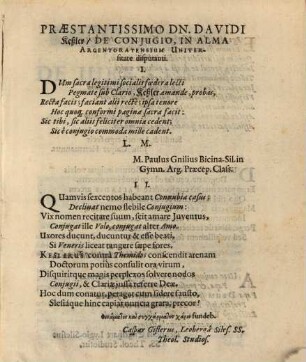 PRÆSTANTISSIMO DN. DAVIDI
Keßler/ DE CONJUGIO, IN ALMA
ARGENTORATENSIUM UNIVER-
sitate disputanti.
I.
DUm sacra legitimi socialis fœdera lecti
Pegmate sub Clario, Keßler amande, probas,
Recta facis; faciant alii recte: ipsa tenore
Hoc quoq; conformi pagina sacra facit:
Sic tibi, sic aliis feliciter omnia cedent,
Sic è conjugio commoda mille cadent.
L. M.
M. Paulus Gnilius Bicina-Sil. in
Gymn. Arg. Præcep. Class.
II.
QUamvis sexcentos habeant Connubia casus;
Declinat nemo flebile Conjugium:
Vix nomen recitare suum, scit amare Juventus,
Conjugat ille Volo, conjugat alter Amo.
Uxores dicunt, ducuntur & esse beati,
Si Veneris liceat tangere sæpe fores.
contra Themidos conscendit arenam
Doctorum potius consulit ora virum,
Disquiritque magis perplexos solvere nodos
Conjugii, & Clariæ jussa referre Deæ.
Hoc dum conatur, peragat cum sidere fausto,
Slesiaque hinc capiat munera grata, precor!
χάριν fundeb.
Caspar Gisterus, Leoberga Siles. SS.
Theol. Studios.